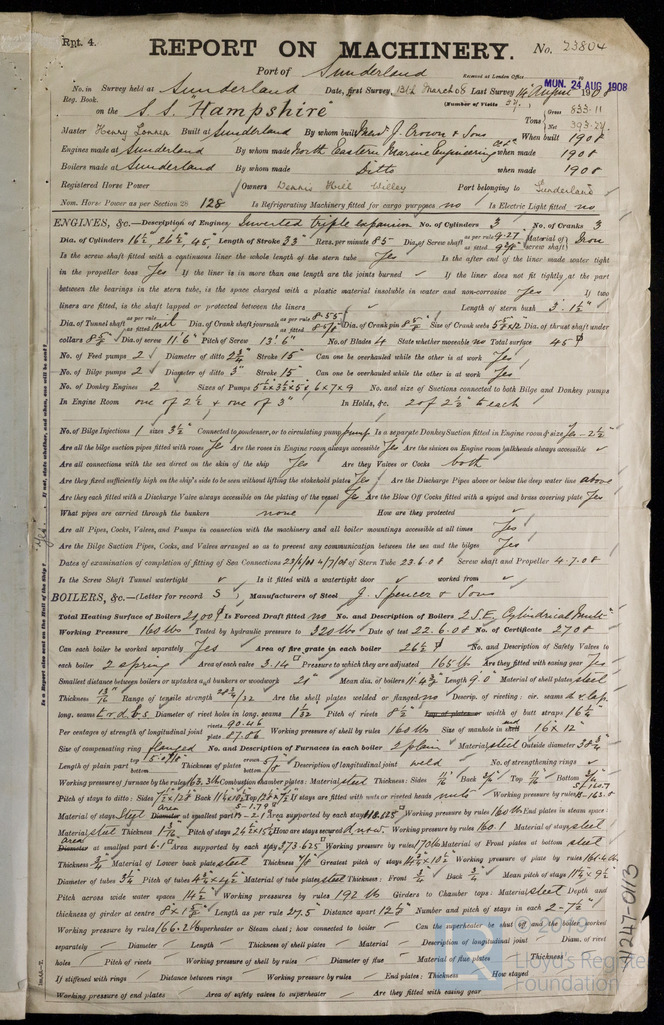 Rpt. 4.
REPORT ON MACHINERY.
No. 23804
Port of Sunderland
Received at London Office
MON. 24 AUG 1908
No. in Survey held at Sunderland Date, first Survey 13th March 08 Last Survey 14 August 1908
Reg. Book.
(Number of Visits
on the S.S. Hampshire
Tons Gross 833.11
Net 393.27
Master Henry Built at Sunderland By whom built Mess J. Crown & Sons When built 1908
Engines made at Sunderland By whom made North Eastern Marine Engineering when made 1908
Boilers made at Sunderland By whom made Ditto when made 1908
Registered Horse Power Owners Dennis Hill Willey Port belonging to Sunderland
Nom. Horse Power as per Section 28 128 Is Refrigerating Machinery fitted for cargo purposes no Is Electric Light fitted no
ENGINES, &c.—Description of Engines Inverted triple expansion No. of Cylinders 3 No. of Cranks 3
Dia. of Cylinders 16½", 26½", 45" Length of Stroke 33" Revs. per minute 85 Dia. of Screw shaft as per rule 9.27 as fitted Material of screw shaft Iron
Is the screw shaft fitted with a continuous liner the whole length of the stern tube Yes Is the after end of the liner made water tight
in the propeller boss Yes If the liner is in more than one length are the joints burned ✓ If the liner does not fit tightly at the part
between the bearings in the stern tube, is the space charged with a plastic material insoluble in water and non-corrosive Yes If two
liners are fitted, is the shaft lapped or protected between the liners ✓ Length of stern bush 3' 1½"
Dia. of Tunnel shaft as per rule as fitted nil Dia. of Crank shaft journals as per rule 8.55 as fitted Dia. of Crank pin Size of Crank webs Dia. of thrust shaft under
collars Dia. of screw 11'.6" Pitch of Screw 13'.6" No. of Blades 4 State whether moveable no Total surface 45
No. of Feed pumps 2 Diameter of ditto 2¾" Stroke 15" Can one be overhauled while the other is at work Yes
No. of Bilge pumps 2 Diameter of ditto 3" Stroke 15" Can one be overhauled while the other is at work Yes
No. of Donkey Engines 2 Sizes of Pumps No. and size of Suctions connected to both Bilge and Donkey pumps
In Engine Room one of 2½ & one of 3" In Holds, &c. 2 of 2½" to each
No. of Bilge Injections 1 sizes 3½" Connected to condenser, or to circulating pump pump Is a separate Donkey Suction fitted in Engine room & size Yes - 2½"
Are all the bilge suction pipes fitted with roses Yes Are the roses in Engine room always accessible Yes Are the sluices on Engine room bulkheads always accessible ✓
Are all connections with the sea direct on the skin of the ship Yes Are they Valves or Cocks both
Are they fixed sufficiently high on the ship's side to be seen without lifting the stokehold plates Yes Are the Discharge Pipes above or below the deep water line above
Are they each fitted with a Discharge Valve always accessible on the plating of the vessel Yes Are the Blow Off Cocks fitted with a spigot and brass covering plate Yes
What pipes are carried through the bunkers none How are they protected ✓
Are all Pipes, Cocks, Valves, and Pumps in connection with the machinery and all boiler mountings accessible at all times Yes
Are the Bilge Suction Pipes, Cocks, and Valves arranged so as to prevent any communication between the sea and the bilges Yes
Dates of examination of completion of fitting of Sea Connections of Stern Tube 23.6.08 Screw shaft and Propeller 4.7.08
Is the Screw Shaft Tunnel watertight ✓ Is it fitted with a watertight door ✓ worked from ✓
BOILERS, &c.—(Letter for record S) Manufacturers of Steel J. Spencer & Sons
Total Heating Surface of Boilers Is Forced Draft fitted no No. and Description of Boilers 2 S.E. Cylindrical Mult
Working Pressure 160 lbs Tested by hydraulic pressure to 320 lbs Date of test 22.6.08 No. of Certificate 2708
Can each boiler be worked separately Yes Area of fire grate in each boiler No. and Description of Safety Valves to
each boiler 2 spring Area of each valve 3.14 Pressure to which they are adjusted 165 lbs Are they fitted with easing gear Yes
Smallest distance between boilers or uptakes and bunkers or woodwork 21" Mean dia. of boilers Length 9'.0" Material of shell plates steel
Thickness 13/16" Range of tensile strength 28½/32 Are the shell plates welded or flanged no Descrip. of riveting: cir. seams d.r. lap
long. seams t.r.d.b.s Diameter of rivet holes in long. seams 1 1/32 Pitch of rivets width of butt straps 16½"
Per centages of strength of longitudinal joint rivets 90.46 plate 87.86 Working pressure of shell by rules 160 lbs Size of manhole in end 16" x 12"
Size of compensating ring flanged No. and Description of Furnaces in each boiler 2 plain Material steel Outside diameter
Length of plain part top bottom Thickness of plates crown bottom Description of longitudinal joint weld No. of strengthening rings ✓
Working pressure of furnace by the rules 163.3 lbs Combustion chamber plates: Material steel Thickness: Sides Back Top Bottom
Pitch of stays to ditto: Sides Back Top If stays are fitted with nuts or riveted heads nuts Working pressure by rules
Material of stays steel area at smallest part Area supported by each stay Working pressure by rules 160 lbs End plates in steam space:
Material steel Thickness Pitch of stays How are stays secured d.n.&w. Working pressure by rules 160.1 Material of stays steel
area at smallest part 6.1 Area supported by each stay 373.625 Working pressure by rules 170 lbs Material of Front plates at bottom steel
Thickness Material of Lower back plate steel Thickness Greatest pitch of stays Working pressure of plate by rules
Diameter of tubes 3¼" Pitch of tubes Material of tube plates steel Thickness: Front Back Mean pitch of stays
Pitch across wide water spaces 14½" Working pressures by rules 192 lbs Girders to Chamber tops: Material steel Depth and
thickness of girder at centre Length as per rule 27.5 Distance apart Number and pitch of stays in each 2 - 7½"
Working pressure by rules 166.2 lbs Superheater or Steam chest; how connected to boiler — Can the superheater be shut off and the boiler worked
separately — Diameter — Length — Thickness of shell plates — Material — Description of longitudinal joint — Diam. of rivet
holes — Pitch of rivets — Working pressure of shell by rules — Diameter of flue — Material of flue plates — Thickness
If stiffened with rings — Distance between rings — Working pressure by rules — End plates: Thickness — How stayed
Working pressure of end plates — Area of safety valves to superheater — Are they fitted with easing gear
Is a Report also sent on the Hull of the Ship? Yes If not, state whether, and when, one will be sent?
© 2019
Lloyd's Register
Foundation
W247-0113